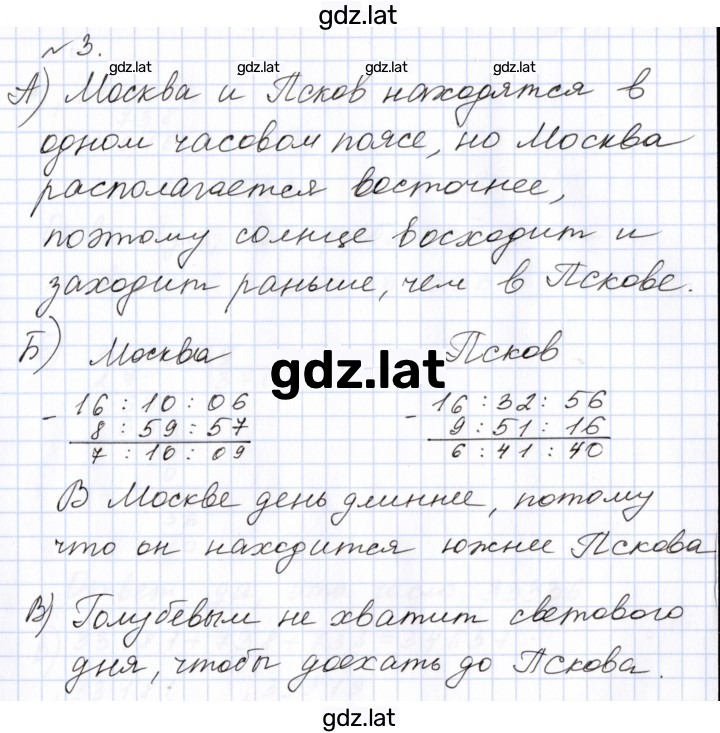 gdz.lat
№ 3.
gdz.lat gdz.lat gdz.lat
А) Москва и Псков находятся в
одном часовом поясе, но Москва
располагается восточнее,
поэтому солнце восходит и
заходит раньше, чем в Пскове.
Б) Москва Псков
gdz.lat
- 16 : 10 : 06 - 16 : 32 : 56
8 : 59 : 57 9 : 51 : 16
7 : 10 : 09 6 : 41 : 40
В Москве день длиннее, потому
что он находится южнее Пскова
В) Голубевым не хватит светового
дня, чтобы доехать до Пскова.
gdz.lat